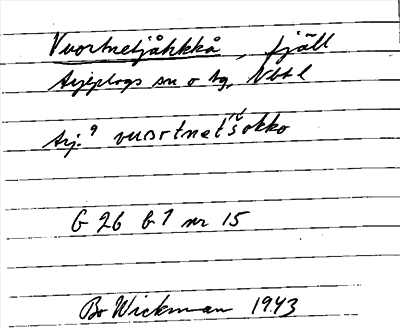 Vuortnetjåhkkå, fjäll
Arjeplogs sn o tg, Vbtl
Arj.⁹ vuortnetš́okko
G 26 b 7 nr 15
Bo Wickman 1943